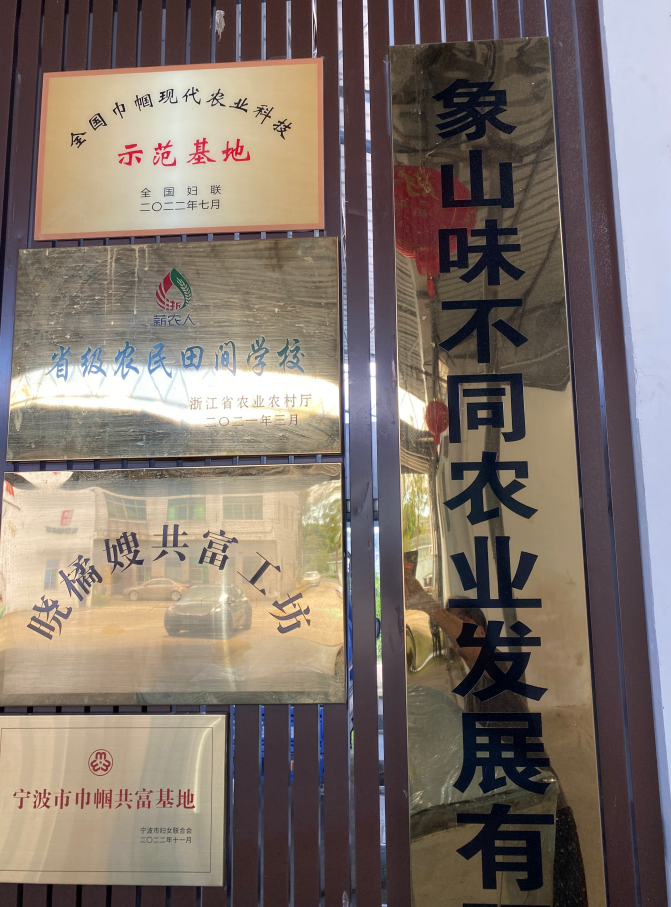 全国巾帼现代农业科技
示范基地
全国妇联
二〇二二年七月
浙
新农人
省级农民田间学校
浙江省农业农村厅
二〇二一年三月
晓橘嫂共富工坊
宁波市巾帼共富基地
宁波市妇女联合会
二〇二二年十一月
象山味不同农业发展有